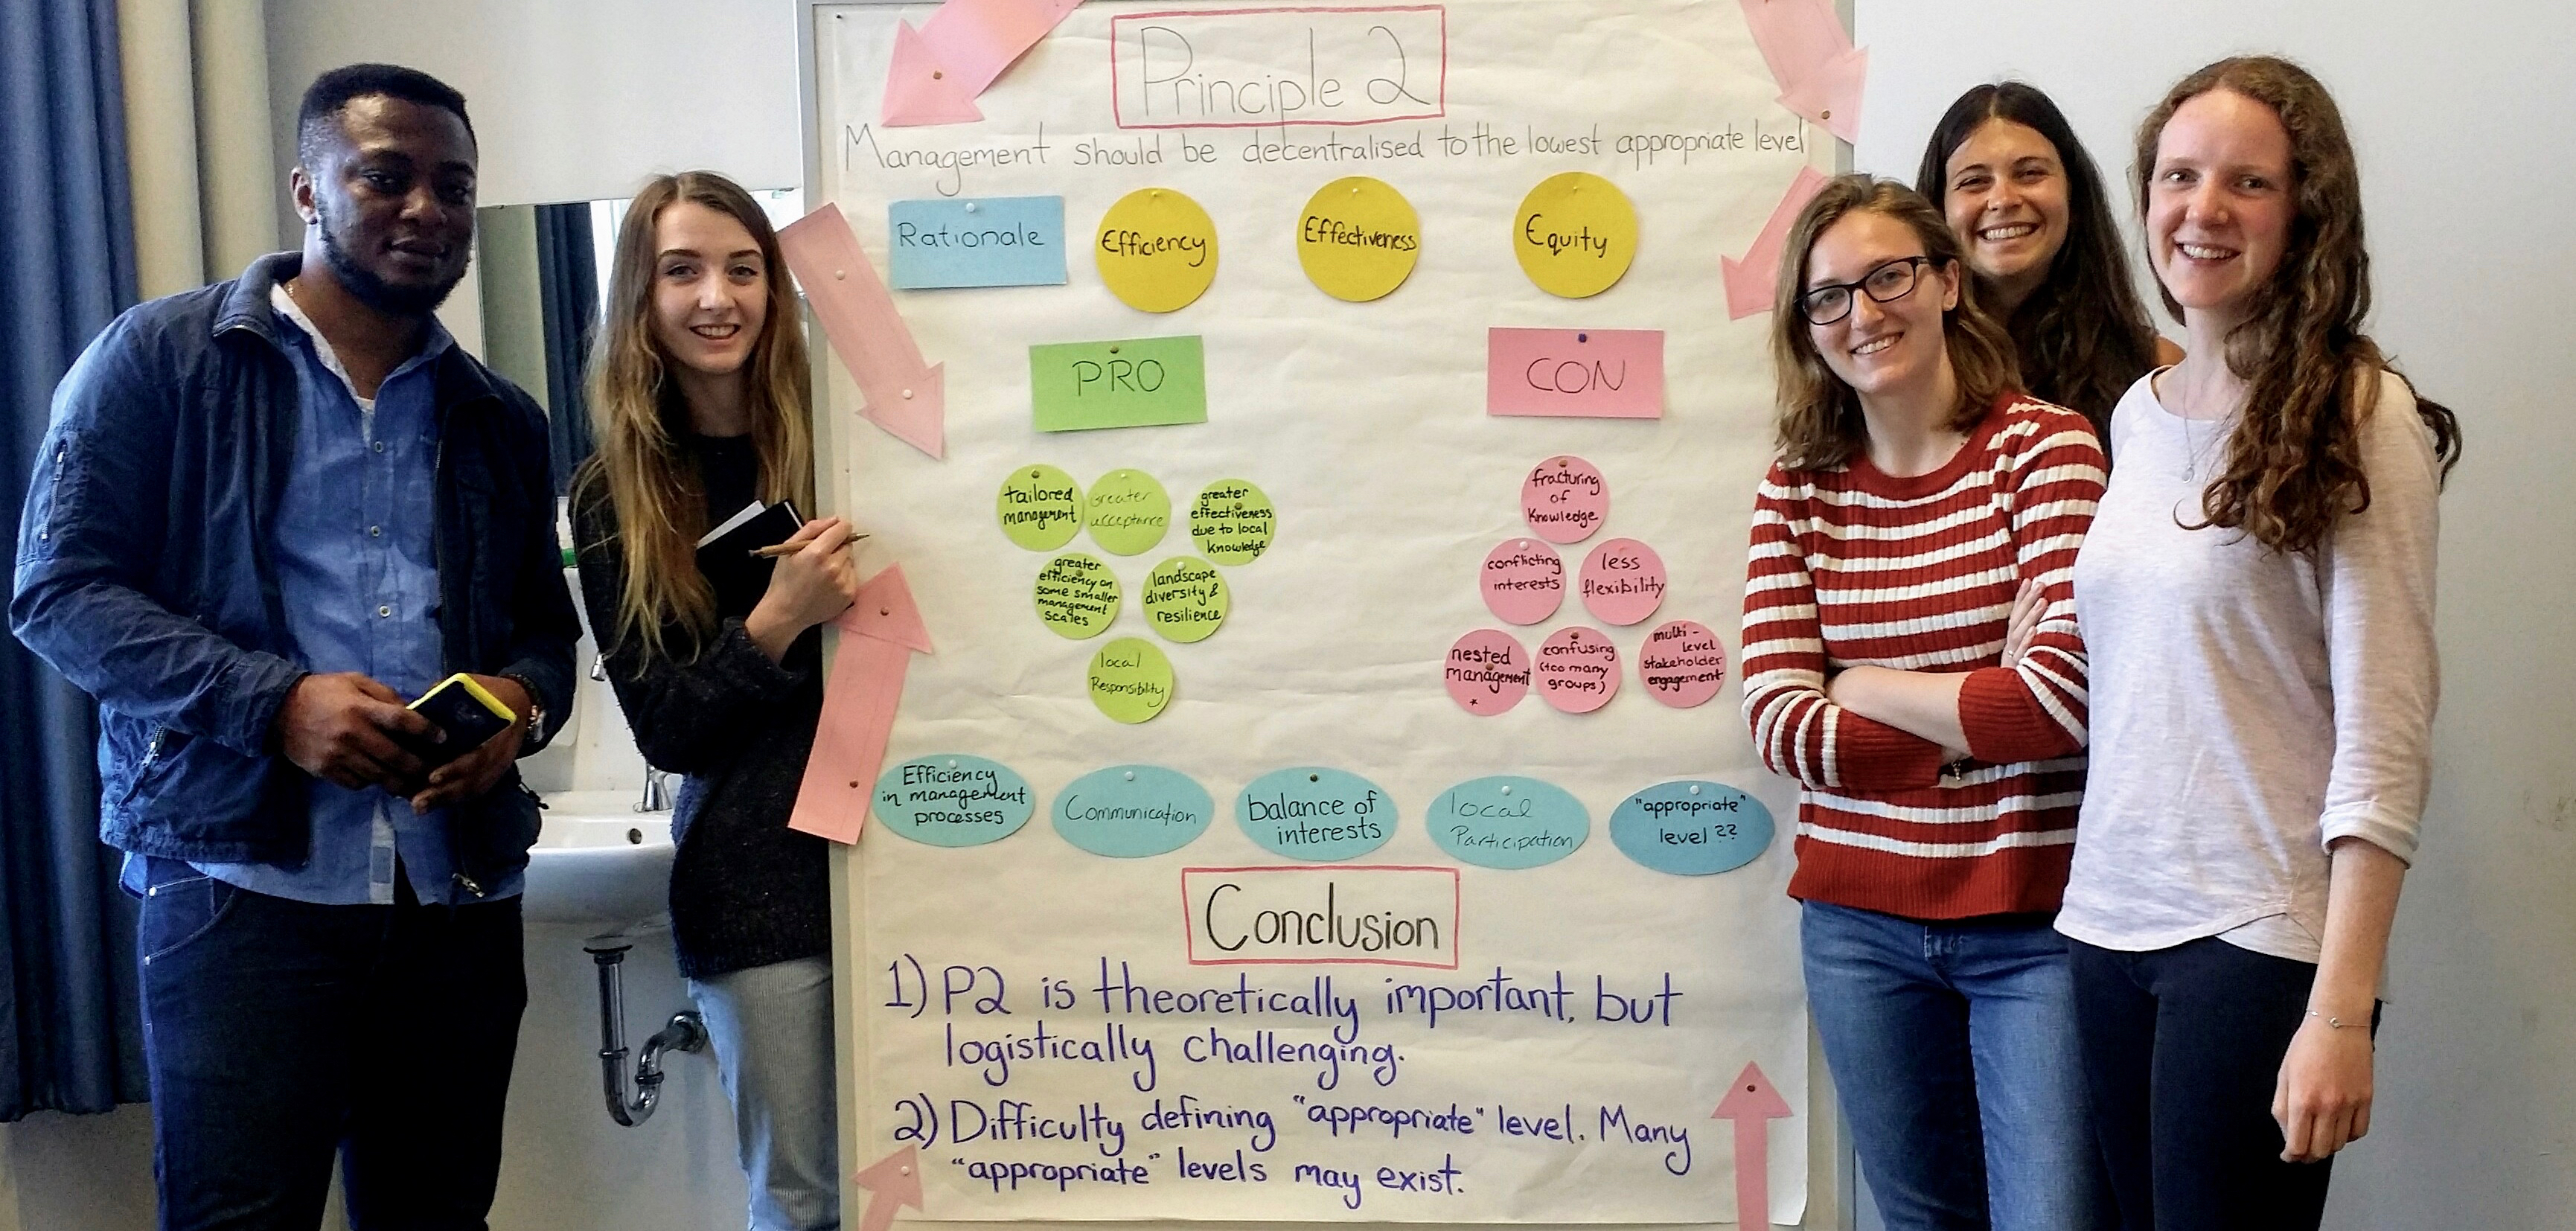 Principle 2
Management should be decentralised to the lowest appropriate level
Rationale
Efficiency
Effectiveness
Equity
PRO
CON
tailored
management
Greater
acceptance
greater
effectiveness
due to local
knowledge
greater
efficiency on
some smaller
management
scales
landscape
diversity &
resilience
local
Responsibility
fracturing
of
Knowledge
conflicting
interests
less
flexibility
nested
management
*
confusing
(too many
groups)
multi-
level
stakeholder
engagement
Efficiency
in management
processes
Communication
balance of
interests
local
Participation
"appropriate"
level ??
Conclusion
1) P2 is theoretically important, but
logistically challenging.
2) Difficulty defining "appropriate" level. Many
"appropriate" levels may exist.